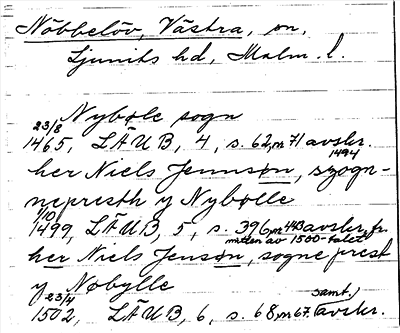 Nöbbelöv, Västra, sn,
Ljunits hd, Malm. l.
Nybøle sogn
23/8
1465, LÄUB, 4, s. 62, nr 71 avskr.
1494
her Niels Jennsøn, szogn-
nepresth y Nybølle
1/10
1499, LÄUB, 5, s. 396, nr 443 avskr. fr.
mitten av 1500-talet
her Niels Jensøn, sogne prest
y Nøbylle
23/4 samt.
1502, LÄUB, 6, s. 68, nr 67. avskr.